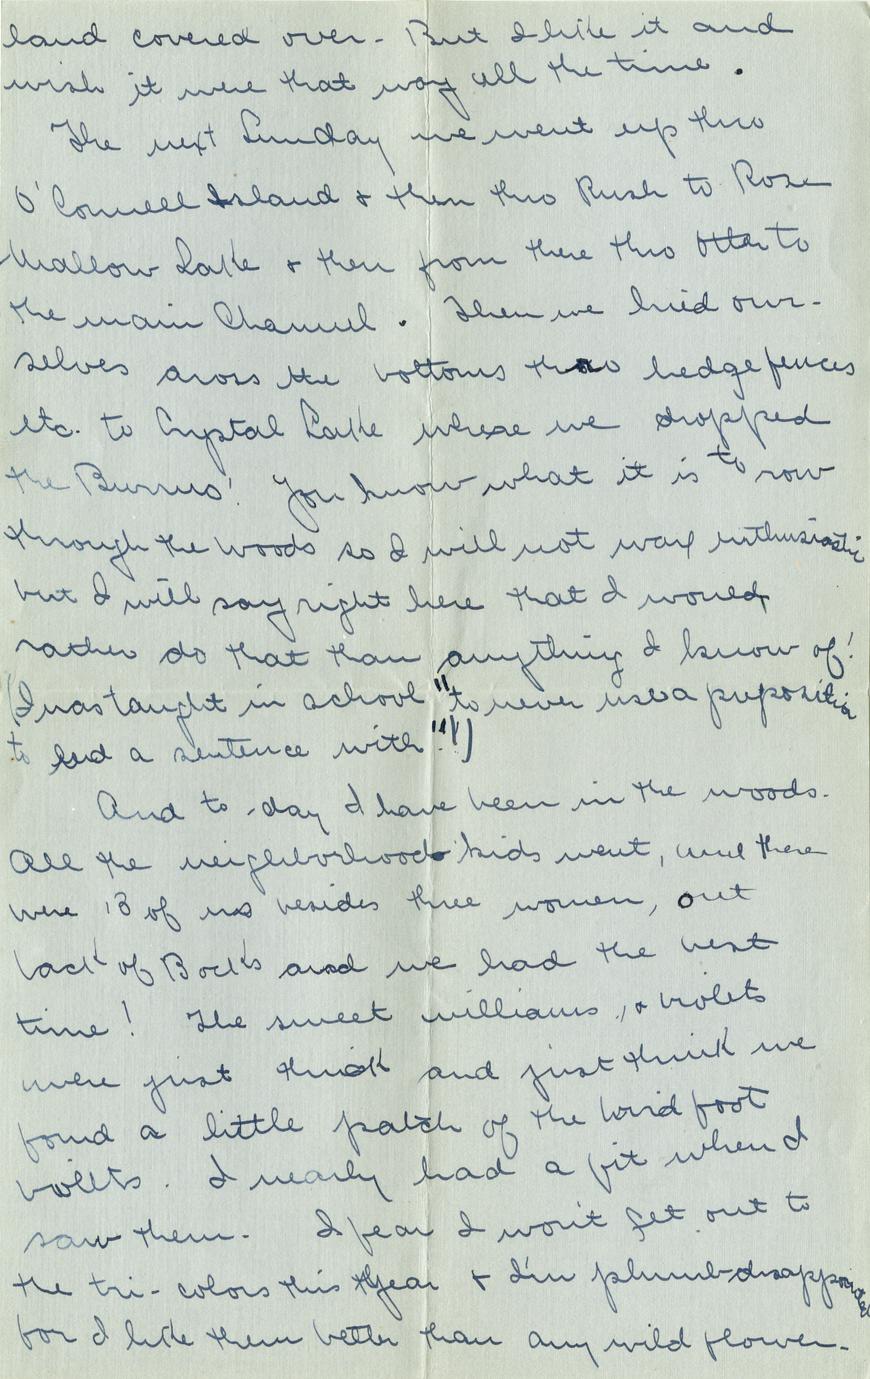 land covered over - But I like it and
wish it were that way all the time .
The next Sunday we went up thro
O'Connell Island & then thro Rush to Rose
Mallow Lake & then from there thro Otter to
the main Channel . Then we hied our-
selves aross the bottoms thro hedge fences
etc. to Crystal Lake where we dropped
the Burrus'! You know what it is to row
through the woods so I will not wax enthusiastic
but I will say right here that I would
rather do that than anything I know of!
(I was taught in school "to never use a preposition
to end a sentence with"!!)
And to-day I have been in the woods.
All the neighborhood kids went, and there
were 13 of us besides three women, out
back of Bock's and we had the best
time! The sweet williams, & violets
were just thick and just think we
found a little patch of the bird foot
voilets. I nearly had a fit when I
saw them. I fear I won't get out to
the tri-colors this year & I'm plumb disappointed
for I like them better than any wild flower.